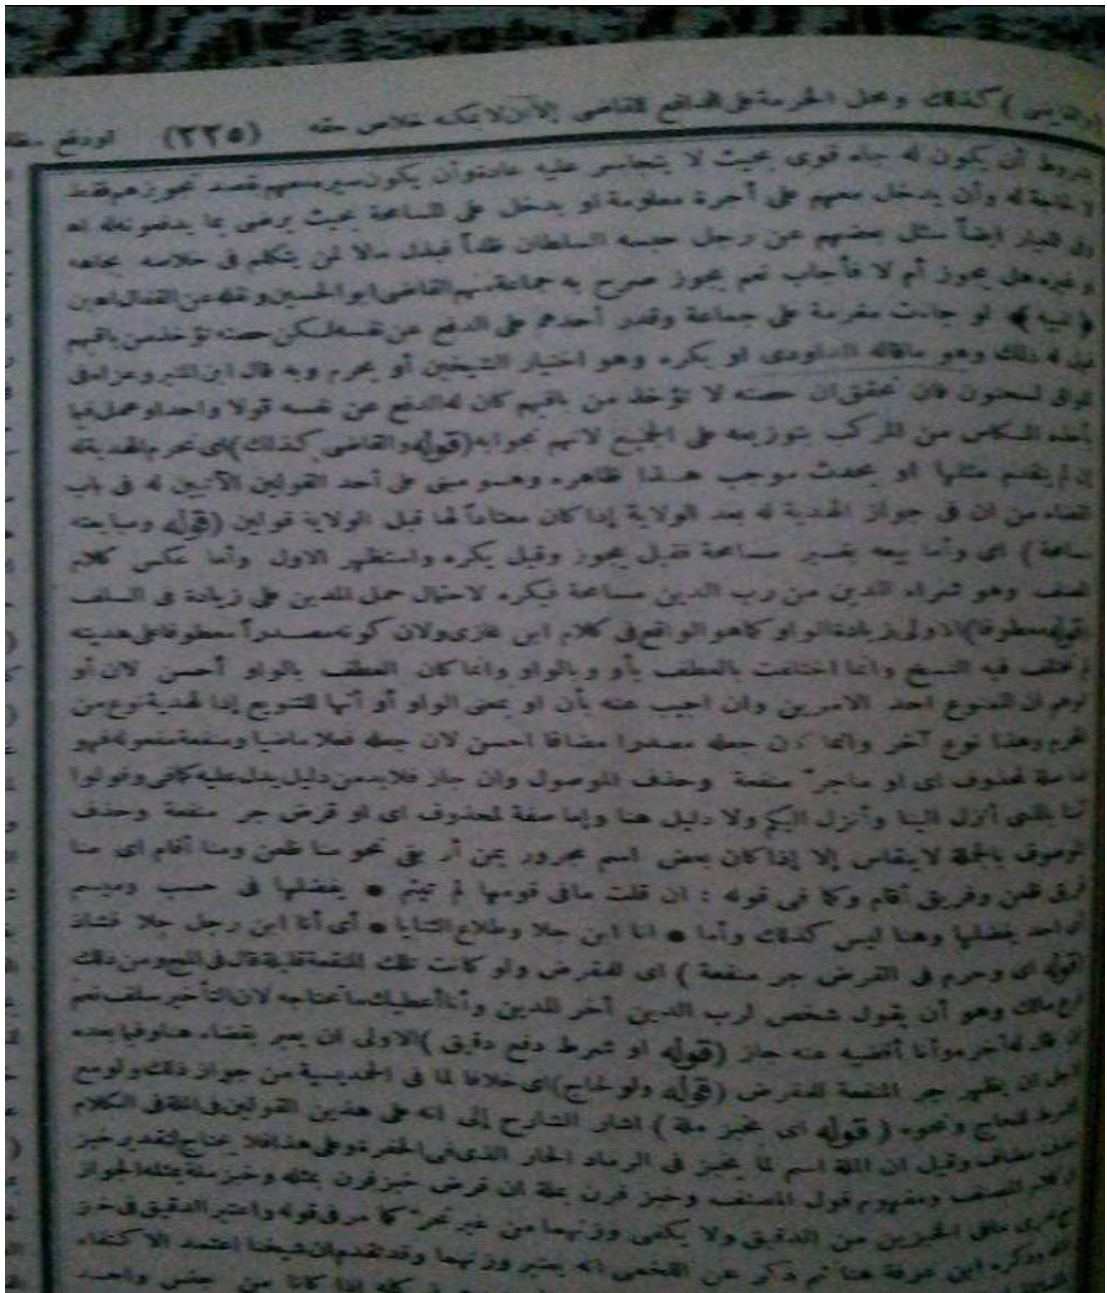 كذلك ومحل الحرمة على الدافع للقاضى إلا أن لا يمكنه خلاص حقه (٢٢٥) لو دفع
بشروط أن يكون له جاه قوى بحيث لا يتجاسر عليه عادة وأن يكون سيره معهم بقصد تجويزهم فقط
لا لحاجة له وأن يدخل معهم على أجرة معلومة او يدخل على المسامحة بحيث يرضى بما يدفعونه له اه
وفى المعيار ايضاً سئل بعضهم عن رجل حبسه السلطان ظلماً فبذل مالا لمن يتكلم فى خلاصه بجاهه
وغيره هل يجوز أم لا فأجاب نعم يجوز صرح به جماعة منهم القاضى ابو الحسين ونقله عن القفال
﴿تنبيه﴾ لو جاءت مغرمة على جماعة وقدر أحدهم على الدفع عن نفسه لكن حصته تؤخذ من باقيهم
فهل له ذلك وهو ماقاله الداودى او يكره وهو اختيار الشيخين أو يحرم وبه قال ابن المنير وعزاه
لسحنون فان تحقق ان حصته لا تؤخذ من باقيهم كان له الدفع عن نفسه قولا واحدا وعمل فيما
يأخذه المكاس من المركب بتوزيعه على الجميع لانهم نجوا به (قوله والقاضى كذلك) اى تحرم الهدية له
إن لم يتقدم مثلها او يحدث موجب هـذا ظاهره وهـو مبنى على أحد القولين الآتيين له فى باب
القضاء من ان فى جواز الهدية له بعد الولاية إذا كان معتاداً لها قبل الولاية قولين (قوله ومبايعته
مسامحة) اى وأما بيعه بغير مسامحة فقيل يجوز وقيل يكره واستظهر الاول وأما عكس كلام
المصنف وهو شراء المدين من رب الدين مسامحة فيكره لاحتمال حمل المدين على زيادة فى السلف
(قوله معطوفا) الاولى زيادة الواو كما هو الواقع فى كلام ابن غازى ولان كونه مصـدراً معطوفا على هديته
لم تختلف فيه النسخ وانما اختلفت بالعطف بأو وبالواو وانما كان العطف بالواو أحسن لان أو
توهم ان الممنوع احد الامرين وان اجيب عنه بأن او بمعنى الواو أو أنها للتنويع إذا الهدية نوع من
المحرم وهذا نوع آخر وانما كان جعله مصدرا مضافا احسن لان جعله فعلا ماضيا ومنفعة مفعوله فهو
اما صلة لمحذوف اى او ماجر منفعة وحذف الموصول وان جاز فلابد من دليل يدل عليه كما فى وقولوا
آمنا بالذى أنزل الينا وأنزل اليكم ولا دليل هنا وإما صفة لمحذوف اى او قرض جر منفعة وحذف
الموصوف بالجملة لا ينقاس إلا إذا كان بعض اسم مجرور بمن أو بفى نحو منا ظعن ومنا أقام اى منا
فريق ظعن وفريق أقام وكما فى قوله : ان قلت مافى قومها لم تيثم * يفضلها فى حسب وميسم
اى احد يفضلها وهنا ليس كذلك وأما * انا ابن جلا وطلاع الثنايا * أى أنا ابن رجل جلا فشاذ
(قوله اى وحرم فى القرض جر منفعة ) اى للمقرض ولو كانت تلك المنفعة قليلة قال فى المج ومن ذلك
فرع مالك وهو أن يقول شخص لرب الدين أخر المدين وأنا أعطيك ما تحتاجه لان التأخير سلف نعم
ان قال له أخره وأنا أقضيه عنه جاز (قوله او شرط دفع دقيق )الاولى ان يعبر بقضاء هنا وفيما بعده
لاجل ان يظهر جر المنفعة للمقرض (قوله ولو لحاج) اى خلافا لما فى الحديسية من جواز ذلك ولو مع
الشرط للحاج ونحوه (قوله اى بخبز ملة ) اشار الشارح إلى انه على هذين القولين فى الملة فى الكلام
حذف مضاف وقيل ان الملة اسم لما يخبز فى الرماد الحار الذى فى الحفرة وعلى هذا فلا يحتاج لتقدير خبز
فى كلام المصنف ومفهوم قول المصنف وخبز فرن بملة ان قرض خبز فرن بمثله وخبز ملة بمثله الجواز
مافى الخبزين من الدقيق ولا يكفى وزنهما من غير تحر كما مر فى قوله واعتبر الدقيق فى خبز
وذكره ابن عرفة هنا ثم ذكر عن اللخمى انه يعتبر وزنهما وقد تقدم ان شيخنا اعتمد الاكتفاء
إذا كانا من جنس واحـد